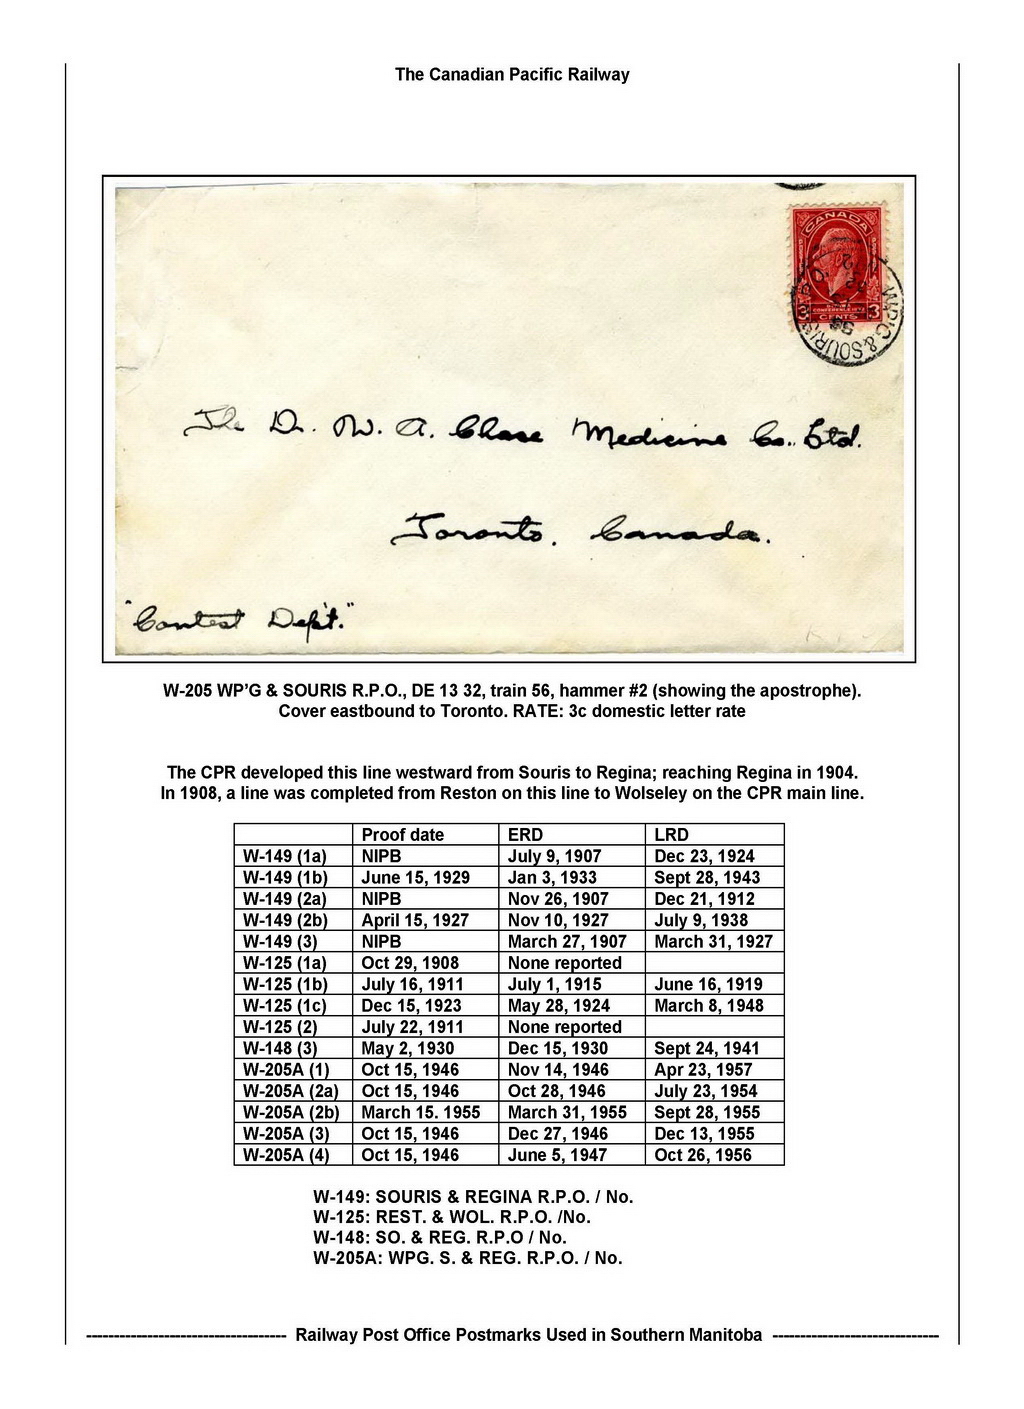 The Canadian Pacific Railway
CANADA
3 3
CENTS
WP'G & SOURIS R.P.O.
56
The Dr. W. A. Chase Medicine Co., Ltd.
Toronto, Canada.
"Contest Dep't."
W-205 WP’G & SOURIS R.P.O., DE 13 32, train 56, hammer #2 (showing the apostrophe).
Cover eastbound to Toronto. RATE: 3c domestic letter rate
The CPR developed this line westward from Souris to Regina; reaching Regina in 1904.
In 1908, a line was completed from Reston on this line to Wolseley on the CPR main line.
Proof date ERD LRD
W-149 (1a) NIPB July 9, 1907 Dec 23, 1924
W-149 (1b) June 15, 1929 Jan 3, 1933 Sept 28, 1943
W-149 (2a) NIPB Nov 26, 1907 Dec 21, 1912
W-149 (2b) April 15, 1927 Nov 10, 1927 July 9, 1938
W-149 (3) NIPB March 27, 1907 March 31, 1927
W-125 (1a) Oct 29, 1908 None reported
W-125 (1b) July 16, 1911 July 1, 1915 June 16, 1919
W-125 (1c) Dec 15, 1923 May 28, 1924 March 8, 1948
W-125 (2) July 22, 1911 None reported
W-148 (3) May 2, 1930 Dec 15, 1930 Sept 24, 1941
W-205A (1) Oct 15, 1946 Nov 14, 1946 Apr 23, 1957
W-205A (2a) Oct 15, 1946 Oct 28, 1946 July 23, 1954
W-205A (2b) March 15. 1955 March 31, 1955 Sept 28, 1955
W-205A (3) Oct 15, 1946 Dec 27, 1946 Dec 13, 1955
W-205A (4) Oct 15, 1946 June 5, 1947 Oct 26, 1956
W-149: SOURIS & REGINA R.P.O. / No.
W-125: REST. & WOL. R.P.O. /No.
W-148: SO. & REG. R.P.O / No.
W-205A: WPG. S. & REG. R.P.O. / No.
------------------------------------ Railway Post Office Postmarks Used in Southern Manitoba ------------------------------